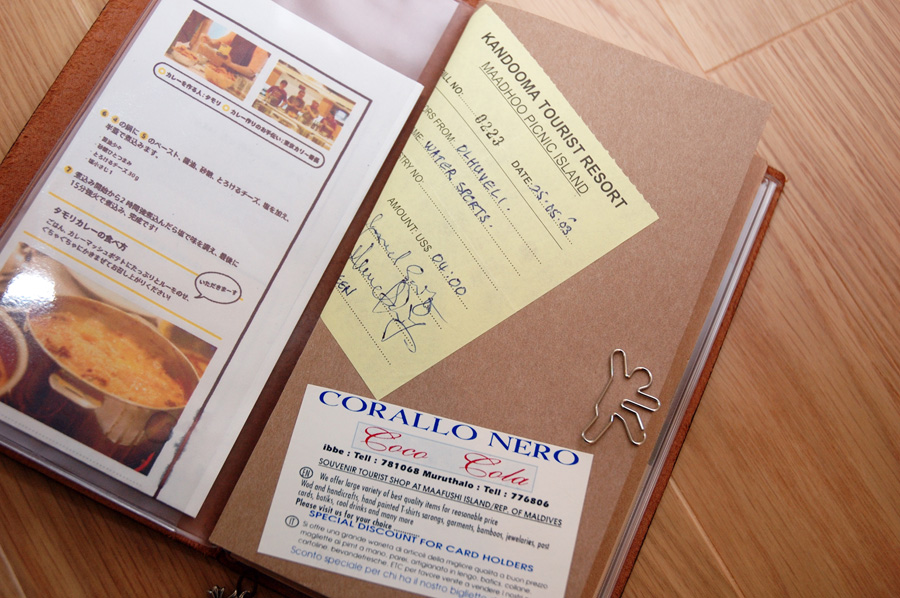 カレーを作る人:タモリ
カレー作りのお手伝い:東京カリ~番長
⑥ ④の鍋に⑤のペースト、醤油、砂糖、とろけるチーズ、塩を加え、
半量で煮込みます。
醤油少々
砂糖ひとつまみ
とろけるチーズ30g
塩小さじ1
⑦ 煮込み開始から2時間強煮込んだら塩で味を調え、最後に
15分強火で煮込み、完成です!
タモリカレーの食べ方
ごはん、カレーマッシュポテトにたっぷりとルーをのせ、
ぐちゃぐちゃにかきまぜてお召し上がりください!
いただきまーす
KANDOOMA TOURIST RESORT
MAADHOO PICNIC ISLAND
BILL NO: 0223
DATE: 25.05.03
FROM: OLHUVELI.
WATER SPORTS.
TRY NO:
AMOUNT: US$ 04:00
CORALLO NERO
Coco Cola
ibbe : Tell : 781068 Muruthalo : Tell : 776806
SOUVENIR TOURIST SHOP AT MAAFUSHI ISLAND/REP. OF MALDIVES
EN We offer large variety of best quality items for reasonable price
Wod and handicrafts, hand painted T-shirts sarongs, garments, bamboos, jewelaries, post
cards, batiks, cool drinks and many more
Please visit us for your choice
SPECIAL DISCOUNT FOR CARD HOLDERS
IT Si offre una grande warieta di articoli della migliore qualita a buon prezzo
magliette ai pimt a mano, parei, artigianato in lengo, batics, collane
cartoline, bevandefresche, ETC per favore venite a vendere i nostri
Sconto speciale per chi ha il nostro biglietto